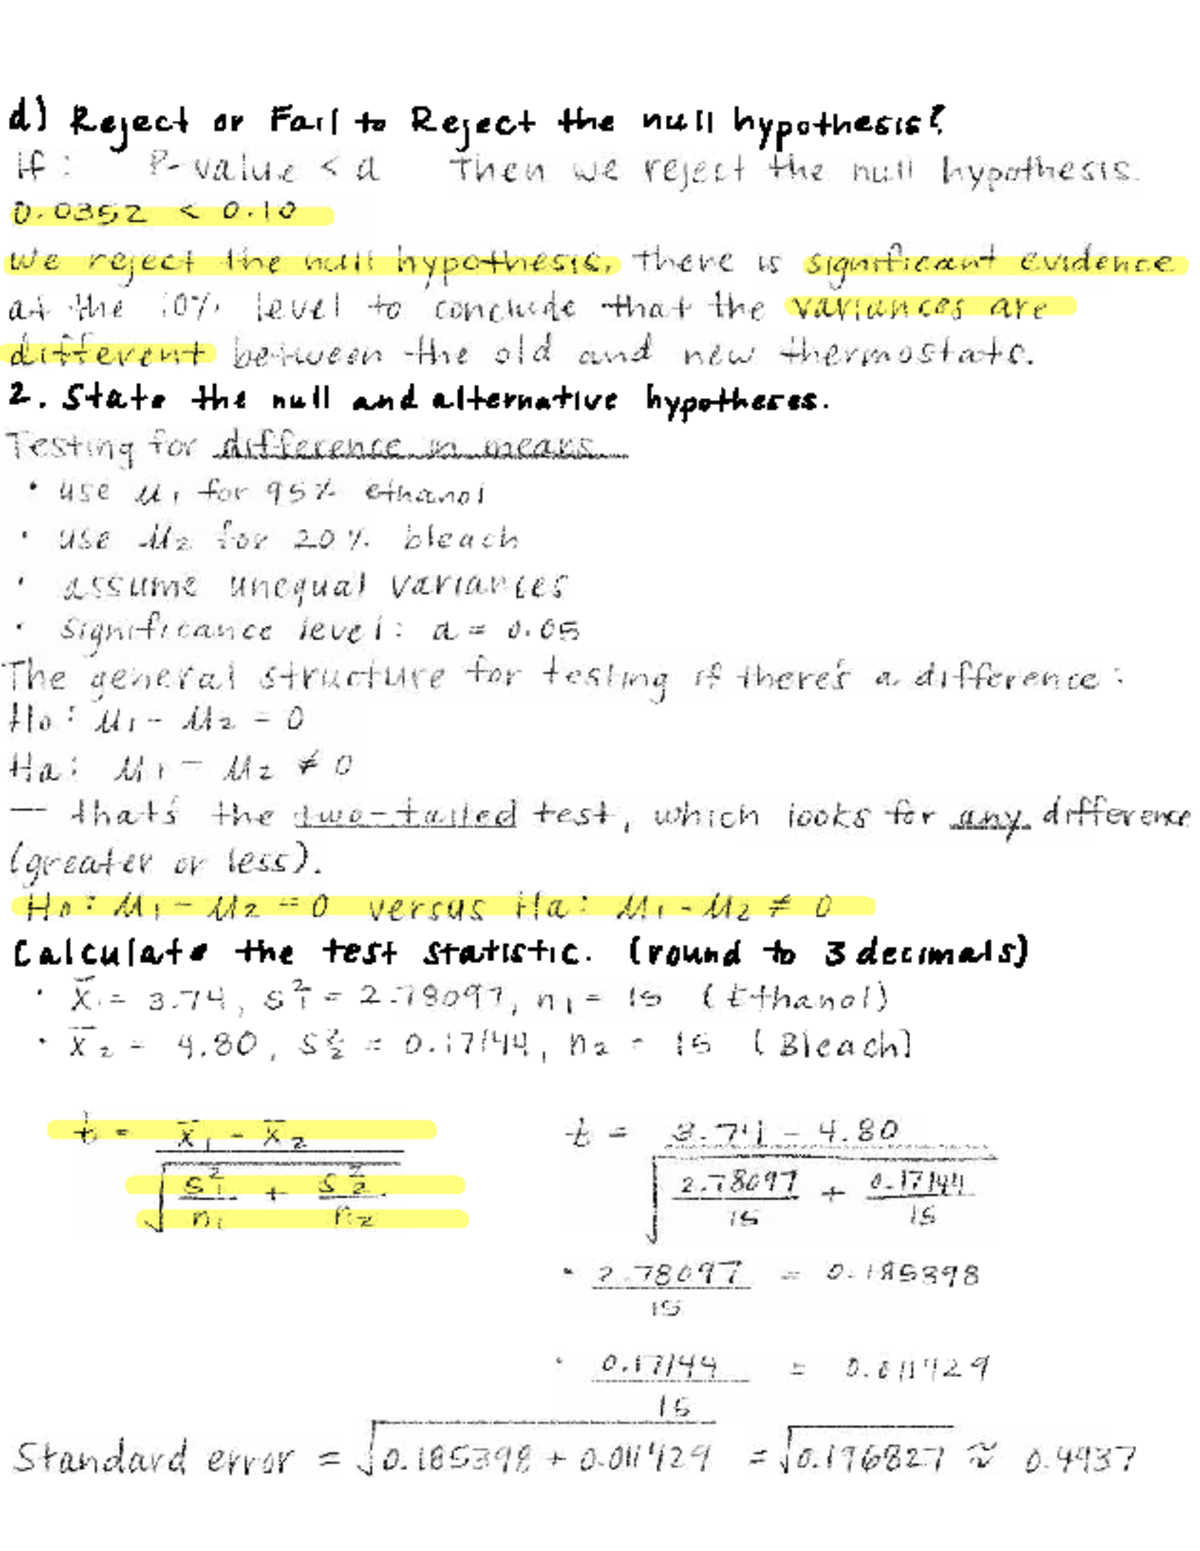 d) Reject or Fail to Reject the null hypothesis?
If: P-value < α Then we reject the null hypothesis.
0.0352 < 0.10
We reject the null hypothesis, there is significant evidence
at the 10% level to conclude that the variances are
different between the old and new thermostats.
2. State the null and alternative hypotheses.
Testing for difference in means
• use μ₁ for 95% ethanol
• use μ₂ for 20% bleach
• assume unequal variances
• significance level: α = 0.05
The general structure for testing if there's a difference:
H₀: μ₁ - μ₂ = 0
Ha: μ₁ - μ₂ ≠ 0
— that's the two-tailed test, which looks for any difference
(greater or less).
H₀: μ₁ - μ₂ = 0 versus Ha: μ₁ - μ₂ ≠ 0
Calculate the test statistic. (round to 3 decimals)
• x̄₁ = 3.74, s₁² = 2.78097, n₁ = 15 (Ethanol)
• x̄₂ = 4.80, s₂² = 0.17144, n₂ = 15 (Bleach)
t = x̄₁ - x̄₂ / √(s₁²/n₁ + s₂²/n₂) t = 3.74 - 4.80 / √(2.78097/15 + 0.17144/15)
• 2.78097/15 = 0.185398
• 0.17144/15 = 0.011429
Standard error = √(0.185398 + 0.011429) = √0.196827 ≈ 0.4437